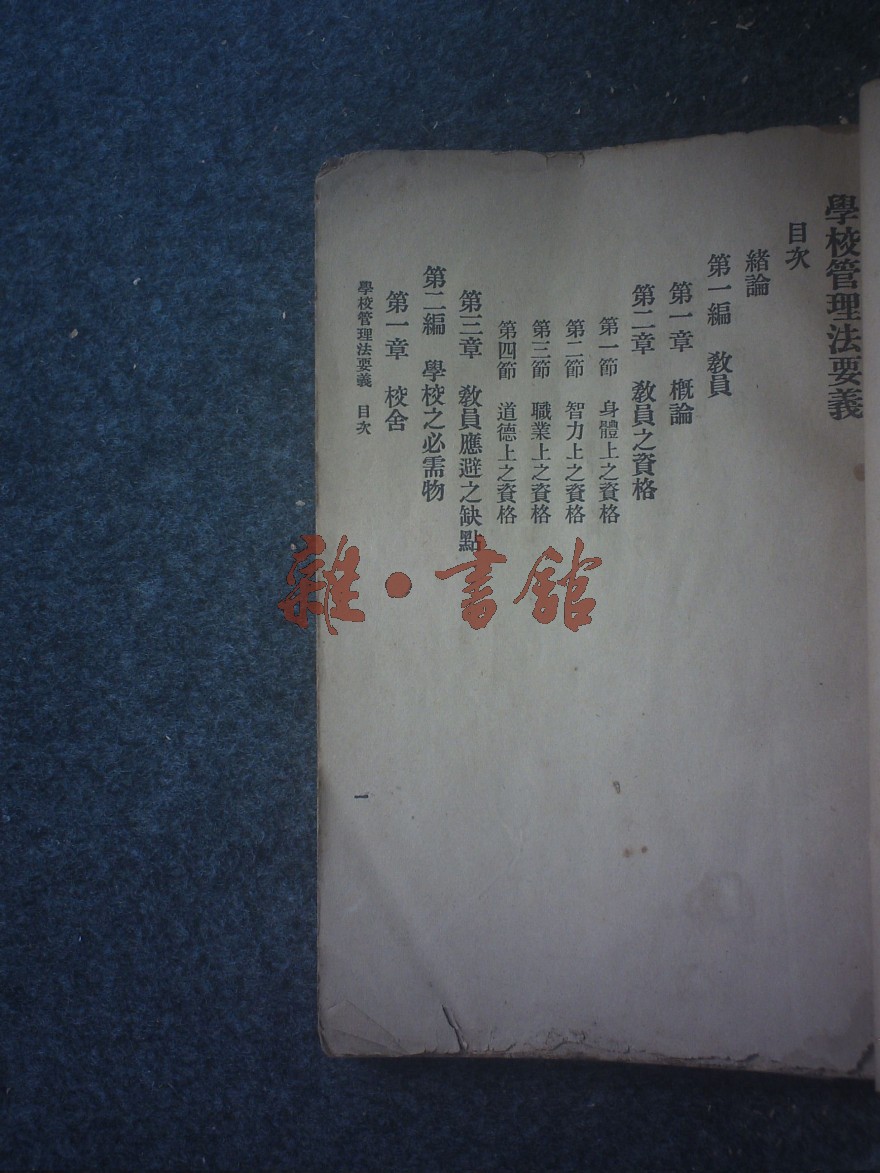 學校管理法要義
目次
緒論
第一編 教員
第一章 概論
第二章 教員之資格
第一節 身體上之資格
第二節 智力上之資格
第三節 職業上之資格
第四節 道德上之資格
第三章 教員應避之缺點
第二編 學校之必需物
第一章 校舍
學校管理法要義 目次
一
雜·書館